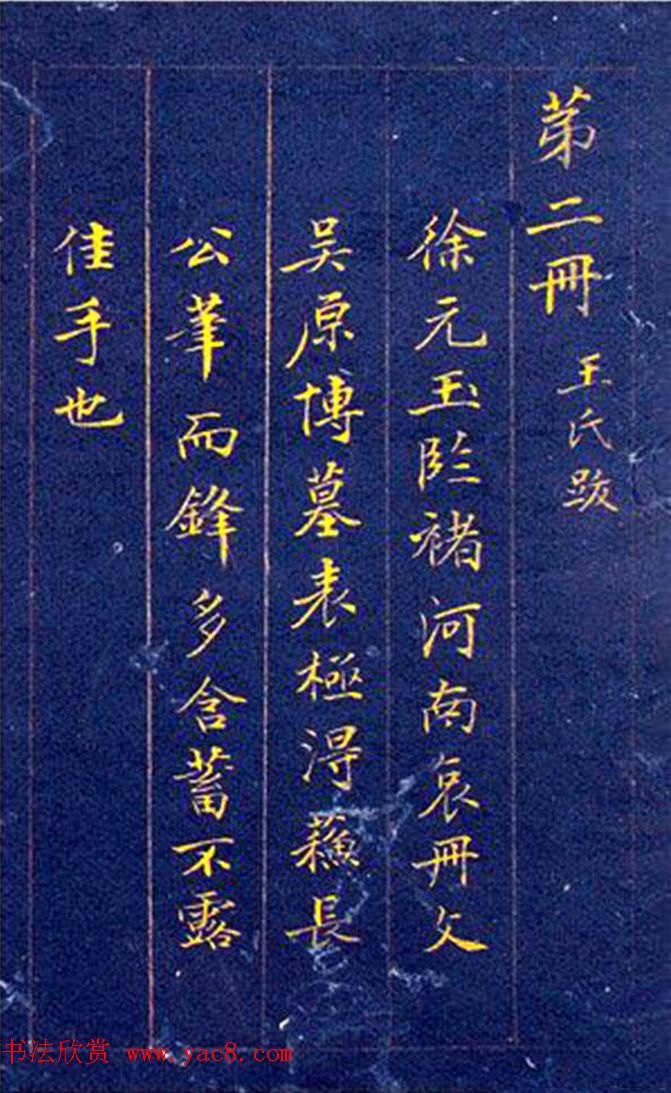 第二冊 王氏跋
徐元玉臨褚河南哀冊文
吴原博墓表極淂蘓長
公筆而鋒多含蓄不露
佳手也
书法欣赏 www.yac8.com